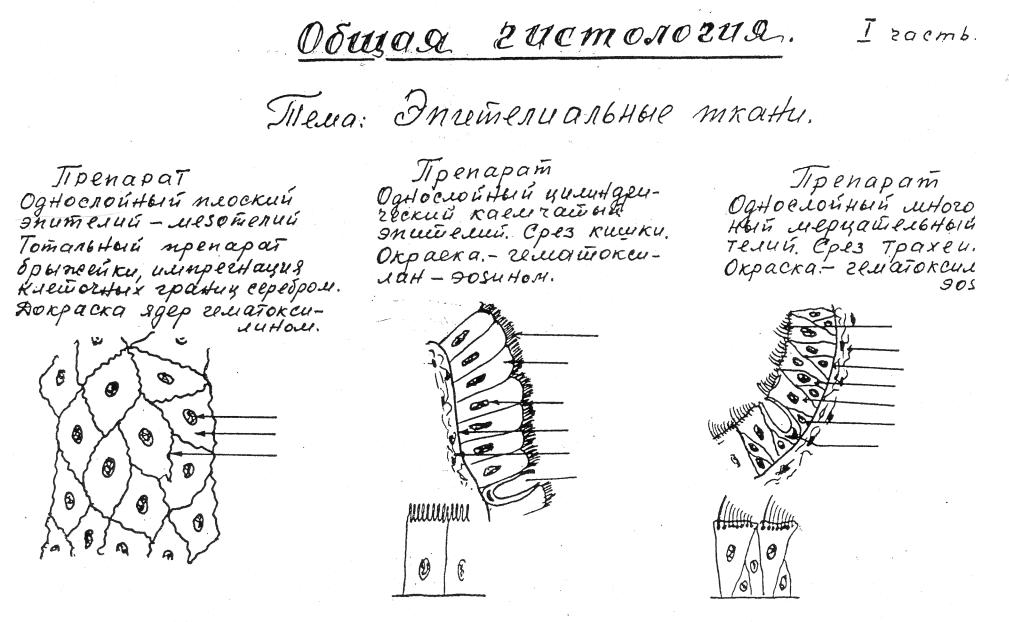 Общая гистология.
I часть.
Тема: Эпителиальные ткани.
Препарат
Однослойный плоский
эпителий – мезотелий
Тотальный препарат
брыжейки, импрегнация
клеточных границ серебром.
Докраска ядер гематокси-
лином.
Препарат
Однослойный цилиндри-
ческий каемчатый
эпителий. Срез кишки.
Окраска. – гематокси-
лан – эозином.
Препарат
Однослойный много
ный мерцательный
телий. Срез трахеи.
Окраска – гематоксил
эоз